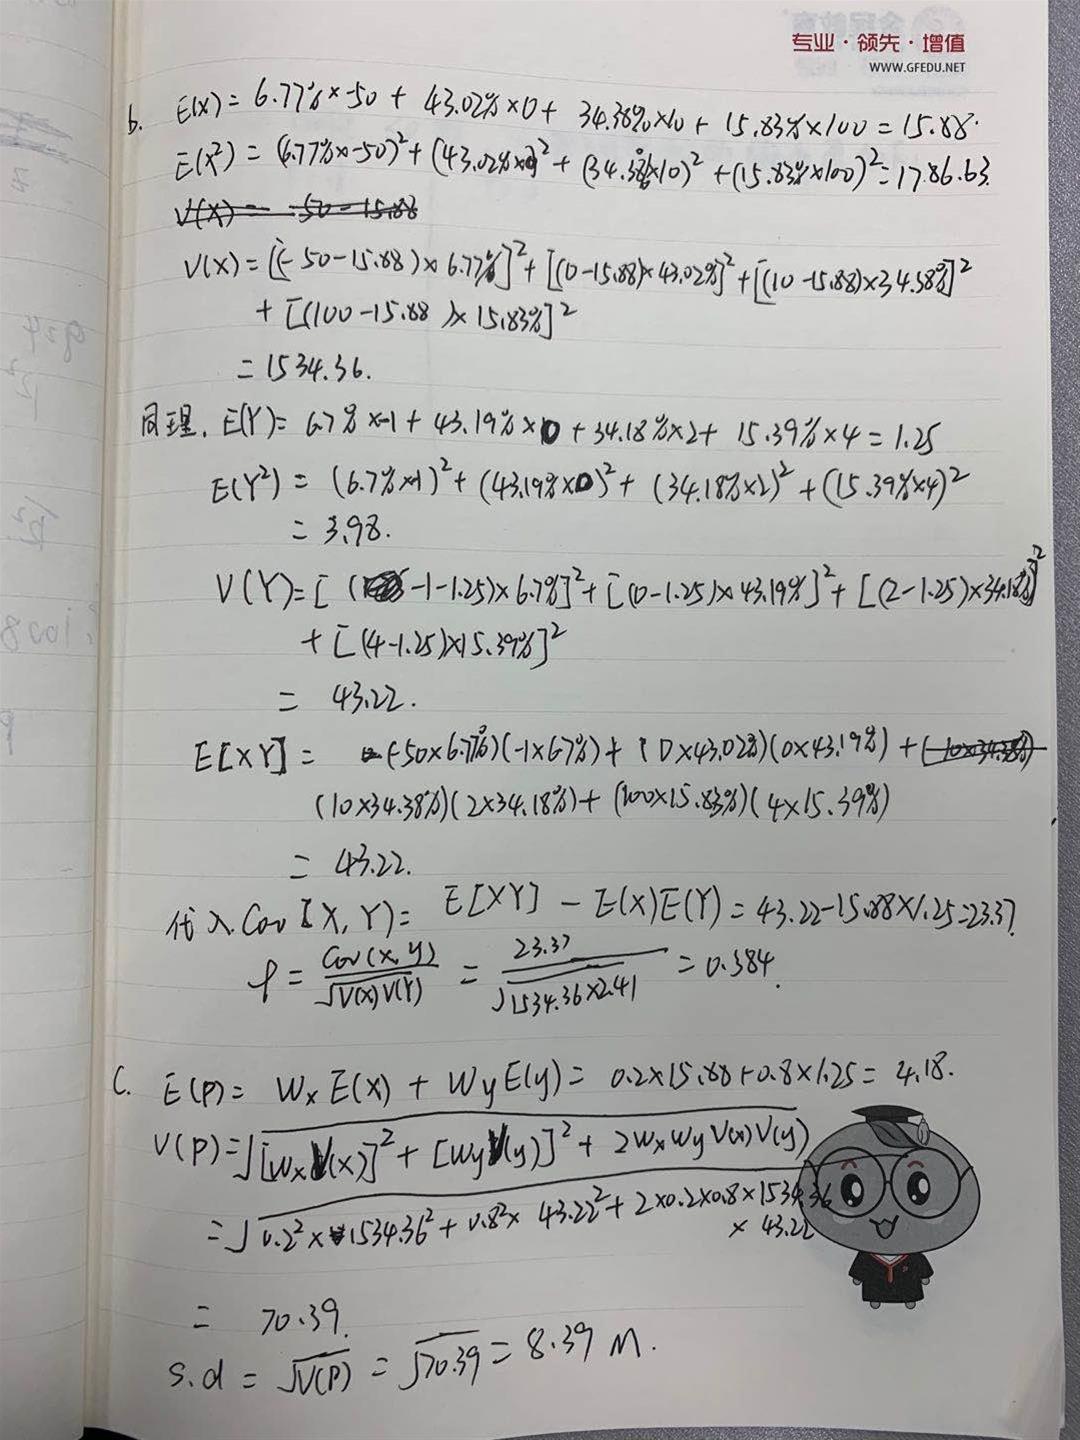 专业·领先·增值
WWW.GFEDU.NET
b. E(X) = 6.77%×-50 + 43.02%×0 + 34.38%×10 + 15.83%×100 = 15.88.
E(X²) = (6.77%×-50)² + (43.02%×0)² + (34.38%×10)² + (15.83%×100)² = 1786.63.
V(X) = -50-15.88
V(X) = [(-50-15.88)×6.77%]² + [(0-15.88)×43.02%]² + [(10-15.88)×34.58%]²
+ [(100-15.88)×15.83%]²
= 1534.36.
同理, E(Y) = 6.7%×-1 + 43.19%×0 + 34.18%×2 + 15.39%×4 = 1.25
E(Y²) = (6.7%×-1)² + (43.19%×0)² + (34.18%×2)² + (15.39%×4)²
= 3.98.
V(Y) = [(-1-1.25)×6.7%]² + [(0-1.25)×43.19%]² + [(2-1.25)×34.18%]²
+ [(4-1.25)×15.39%]²
= 43.22.
E[XY] = (-50×6.77%)(-1×6.7%) + (0×43.02%)(0×43.19%) + (-10×34.38%)
(10×34.38%)(2×34.18%) + (100×15.83%)(4×15.39%)
= 43.22.
代入 Cov[X,Y) = E[XY] - E(X)E(Y) = 43.22-15.88×1.25=23.37.
ρ = Cov(x,y)/√V(X)V(Y) = 23.37/√1534.36×2.41 = 0.384.
C. E(P) = Wx E(x) + Wy E(y) = 0.2×15.88+0.8×1.25 = 4.18.
V(P) = √[Wx V(x)]² + [Wy V(y)]² + 2WxWy V(x) V(y)
= √0.2²×1534.36² + 0.8²× 43.22² + 2×0.2×0.8×1534.36
× 43.22
= 70.39.
s.d = √V(P) = √70.39 = 8.39 M.